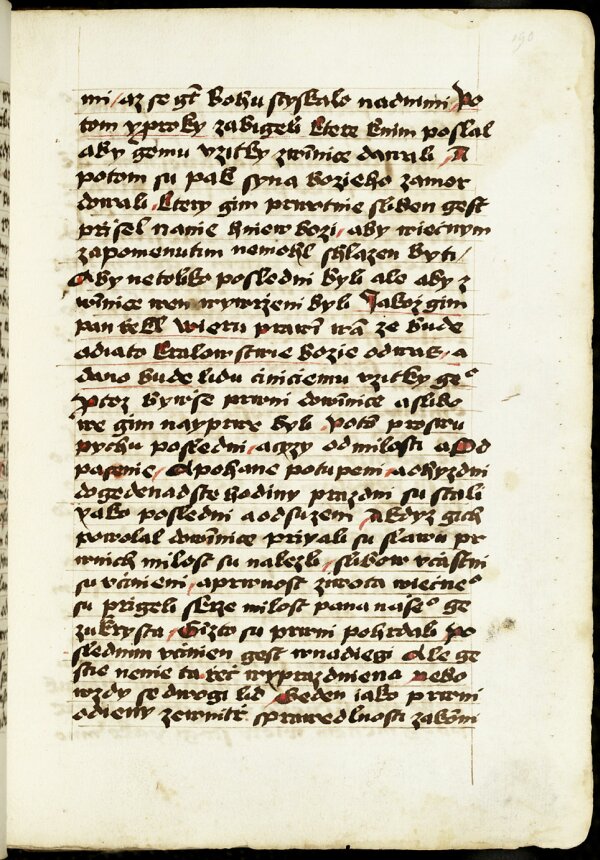 190
mi / az se gt̄ bohu styskalo nad nimi Po
tom y proky zabigeli ktere knim poslal
aby gemu vzitky z winnice dawali A
potom su pak syna bozieho zamor
dowali ktery gim prwotnie sliben gest
přisel nanie hniew bozi / aby wiecnym
zapomenutim nemohl shlazen byti /
Aby netoliko posledni byli ale aby z
winnice wen wywrzeni byli Jakoz gim
pan řekl wieru prawi wā ze bude
odiato kralowstwie bozie od was / a
dano bude lidu ciniciemu vzitky geᵒ
ktoz bywse prwni
we gim nayprwe byl potō prosťu
pychu posledni / a czy od milosti a Od
pasenie / A pohane potupeni / a ohyzdni
do gedenadste hodiny prazdni su stali
yako posledni a odsuzeni A kdyz gich
powolal dowinnice priyali su slawu pr
wnich milost su nalezli / slibow vcastni
su vcinieni / a prwnost ziwota wiecneᵒ
su prigeli skrze milost pana naseᵒ ge
zukrysta / Gizto su prwni pohrdali Po
slednim vcinien gest wnadiegi Ale ge
stie nenie ta řeč wyprazdniena nebo
wzdy se dwogi lid Geden iako prwni
odieny zewnitř sprawedlnosti zakōni